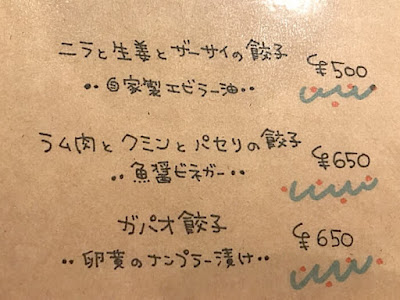 ニラと生姜とザーサイの餃子 ¥500
・・自家製エビラー油・・
ラム肉とクミンとパセリの餃子 ¥650
・・魚醤ビネガー・・
ガパオ餃子 ¥650
・・卵黄のナンプラー漬け・・